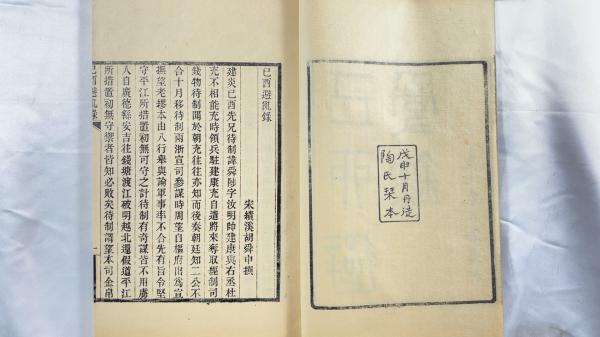 戊申十月丹徒
陶氏栞本
己酉避亂錄
宋績溪胡舜申撰
建炎己酉先兄待制諱舜陟字汝明帥建康與右丞杜
充不相能充時領兵駐建康充自遣將來奪取經制司
錢物待制聞於朝充往往亦知而後奏朝廷知二公不
合十月移待制兩浙宣司參謀時周望自樞府出爲宣
撫望老繆本由八行舉與論軍事率不合先有旨令堅
守平江所措置初無可守之計待制有奇謀皆不用虜
人自廣德縣安吉往錢塘渡江破明越北還假道平江
所措置初無守禦者皆知必敗矣待制謂望本司金帛
己酉避亂錄 一